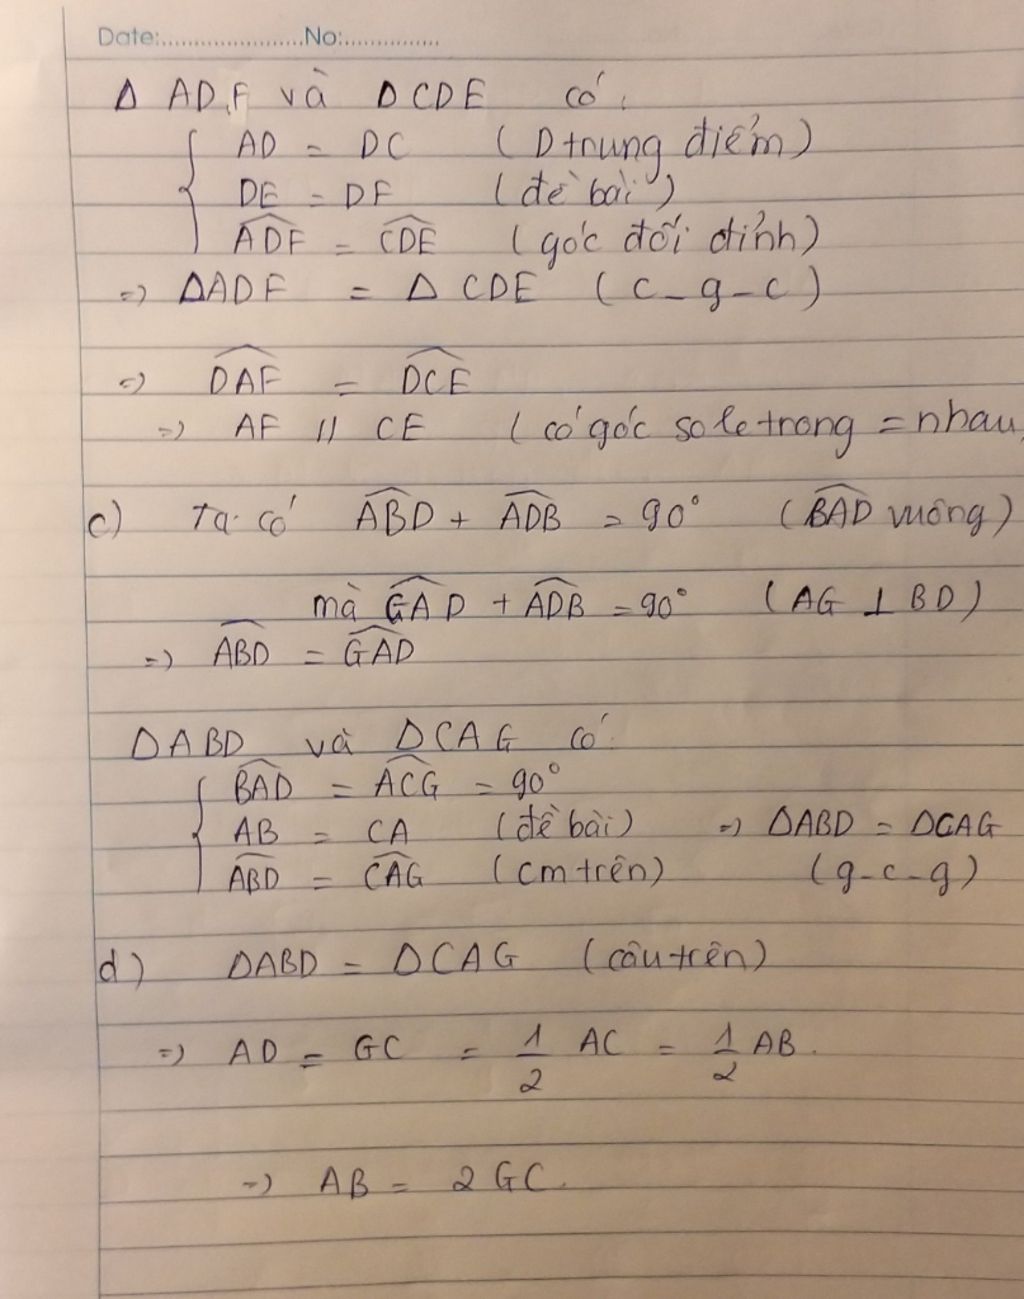 Date:......................No:...............
Δ ADF và ΔCDE có:
AD = DC (D trung điểm)
DE = DF (đề bài)
\widehat{ADF} = \widehat{CDE} (góc đối đỉnh)
=> ΔADF = ΔCDE (c-g-c)
=> \widehat{DAF} = \widehat{DCE}
=> AF // CE (có góc so le trong = nhau
c) Ta có \widehat{ABD} + \widehat{ADB} = 90° (\widehat{BAD} vuông)
mà \widehat{GAD} + \widehat{ADB} = 90° (AG ⊥ BD)
=> \widehat{ABD} = \widehat{GAD}
ΔABD và ΔCAG có:
\widehat{BAD} = \widehat{ACG} = 90°
AB = CA (đề bài) => ΔABD = ΔCAG
\widehat{ABD} = \widehat{CAG} (cm trên) (g-c-g)
d) ΔABD = ΔCAG (câu trên)
=> AD = GC = 1/2 AC = 1/2 AB.
=> AB = 2GC.